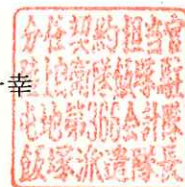 幸
分任契約担当官
陸上自衛隊飯塚駐
屯地第 会計隊
飯塚派遣隊長